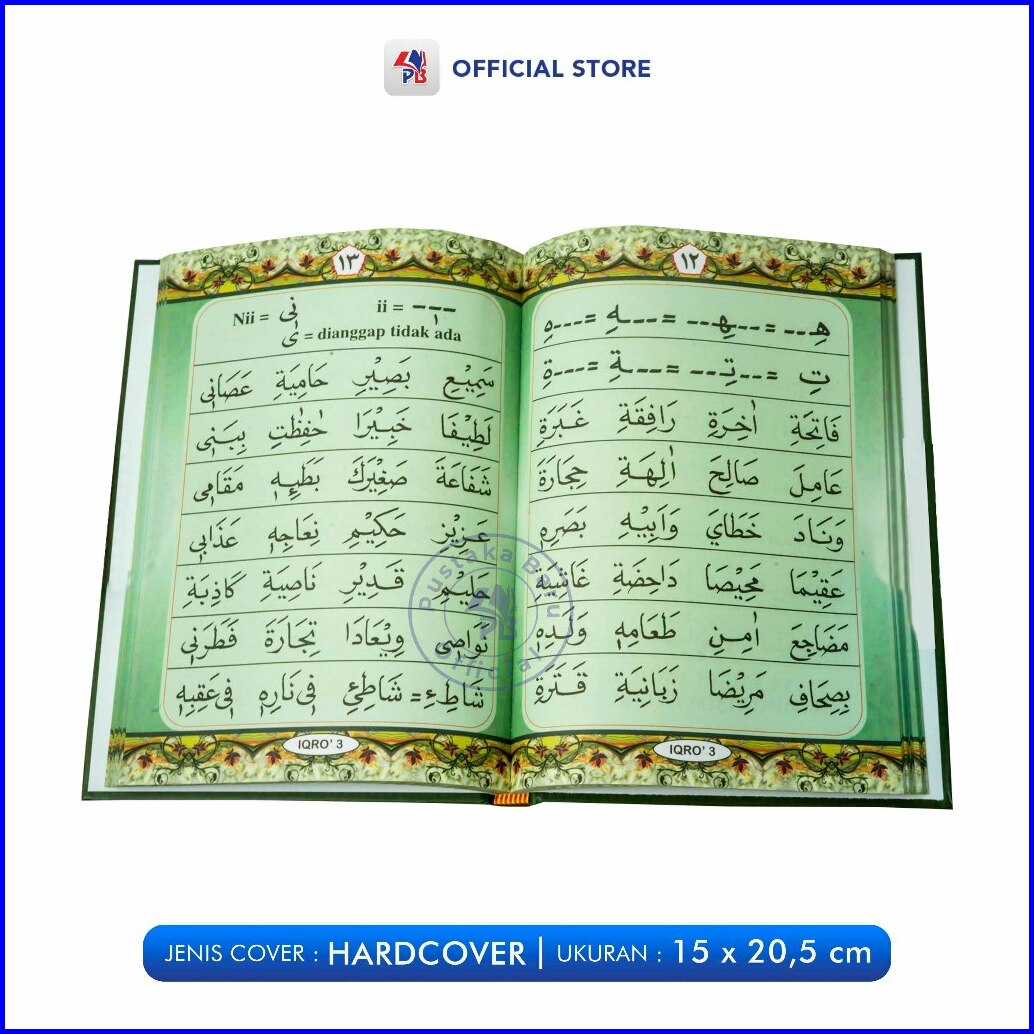 OFFICIAL STORE
١٢
هِـ--- = ---ـهِـ--- = ---ـهِ = ---هِ
تِ = ---ـتِـ--- = ---ـةِ = ---ةِ
فَاتِحَةِ اٰخِرَةِ رَافِقَةِ غَبَرَةِ
عَامِلَ صَالِحَ اٰلِهَةِ حِجَارَةَ
وَنَادَ خَطَايَ وَاَبِيْهِ بَصَرِهٖ
عَقِيْمَا مَحِيْصَا دَاحِضَةِ غَاشِيَةِ
مَضَاجِعَ اٰمِنِ طَعَامِهٖ وَلَدِهٖ
بِصِحَافِ مَرِيْضَا زَبَانِيَةِ قَتَرَةِ
IQRO' 3
١٣
Nii = نِى ii = ---
ى = dianggap tidak ada
سَمِيْعِ بَصِيْرِ حَامِيَةِ عَصَانِى
لَطِيْفَا خَبِيْرَا حٰفِظٰتِ بِبَنِى
شَفَاعَةَ صَغِيْرَكَ بَطَيِٕهٖ مَقَامِى
عَزِيْزِ حَكِيْمِ نِعَاجِهٖ عَذَابِى
حَلِيْمِ قَدِيْرِ نَاصِيَةِ كَاذِبَةِ
نَوَاصِى وِيْعَادَا تِجَارَةَ فَطَرَنِى
شَاطِءِ = شَاطِئِ فِى نَارِهٖ فِى عَقِبِهٖ
IQRO' 3
Pustaka Baru
Official
JENIS COVER : HARDCOVER | UKURAN : 15 x 20,5 cm